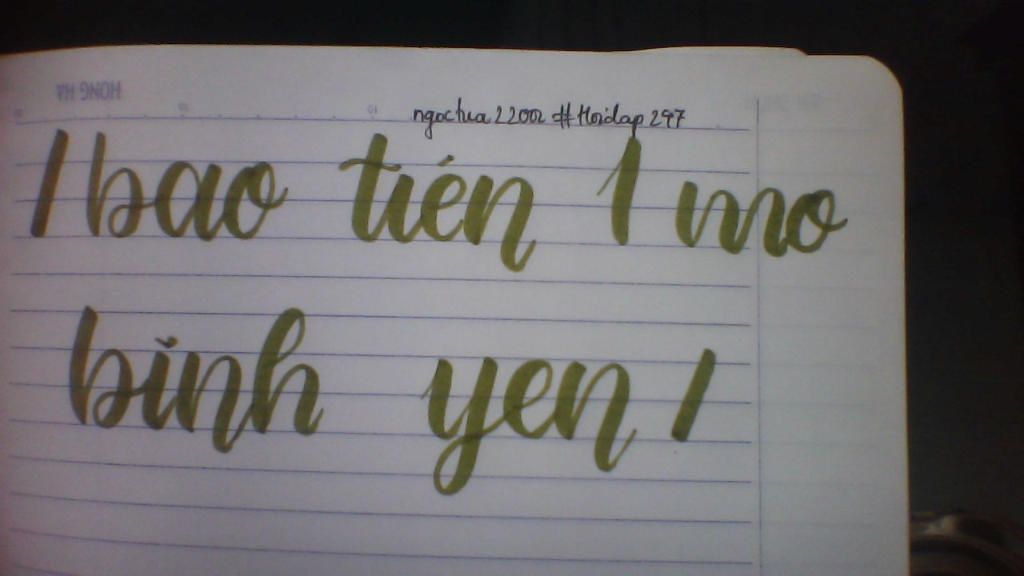 HONG HA
ngoctua22002 #Hoidap247
/ bao tién 1 mo
bình yen /